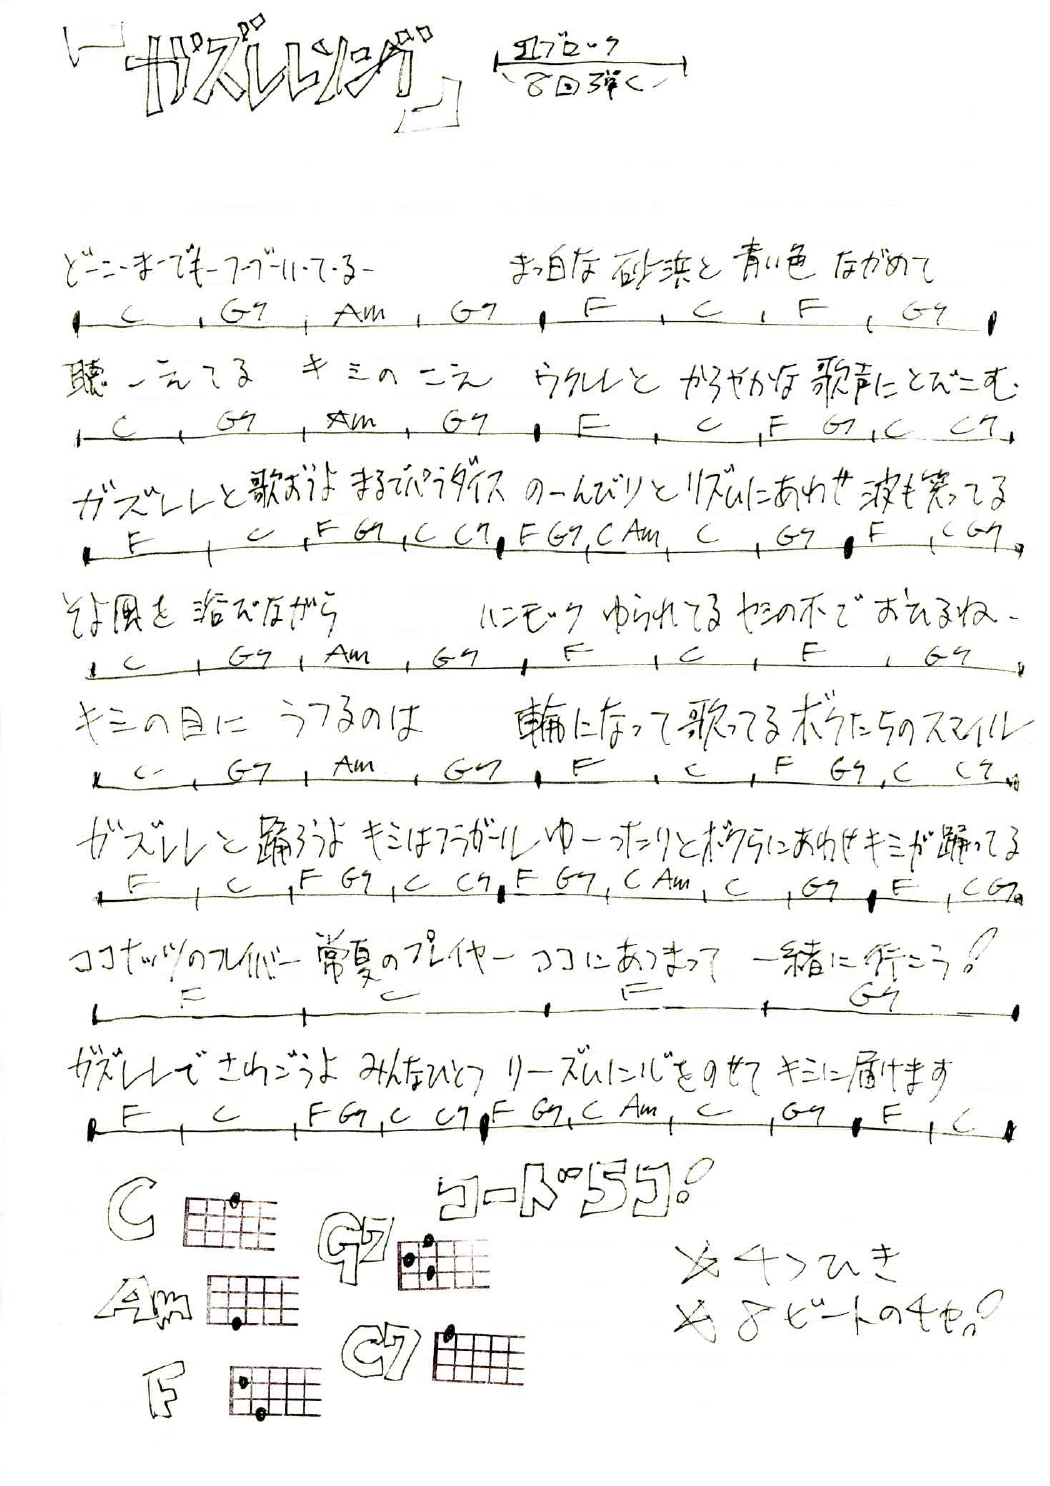 『ガズレレソング』
1ブロック
8回弾く
どーこーまーでもーつーづーいーてーるー まっ白な 砂浜と 青い色 ながめて
C G7 Am G7 F C F G7
聴こえてる キミの こえ ウクレレと かろやかな 歌声に とびこむ
C G7 Am G7 F C F G7 C C7
ガズレレと 歌おうよ まるでパラダイス のーんびりと リズムにあわせ 波も笑ってる
F C F G7 C C7 F G7 C Am C G7 F C G7
そよ風を 浴びながら ハンモック ゆられてる ヤシの木で おひるねー
C G7 Am G7 F C F G7
キミの目に うつるのは 輪になって 歌ってる ボクたちのスマイル
C G7 Am G7 F C F G7 C C7
ガズレレと 踊ろうよ キミはフラガール ゆーったりとボクらにあわせキミが踊ってる
F C F G7 C C7 F G7 C Am C G7 F C G7
ココナッツのフレイバー 常夏のプレイヤー ココにあつまって 一緒に行こう!
F C F G7
ガズレレで さわごうよ みんなひとつ リーズムに心をのせて キミに届けます
F C F G7 C C7 F G7 C Am C G7 F C
コード5コ!
C
G7
Am
C7
F
☆ 4つひき
☆ 8ビートのチャ!